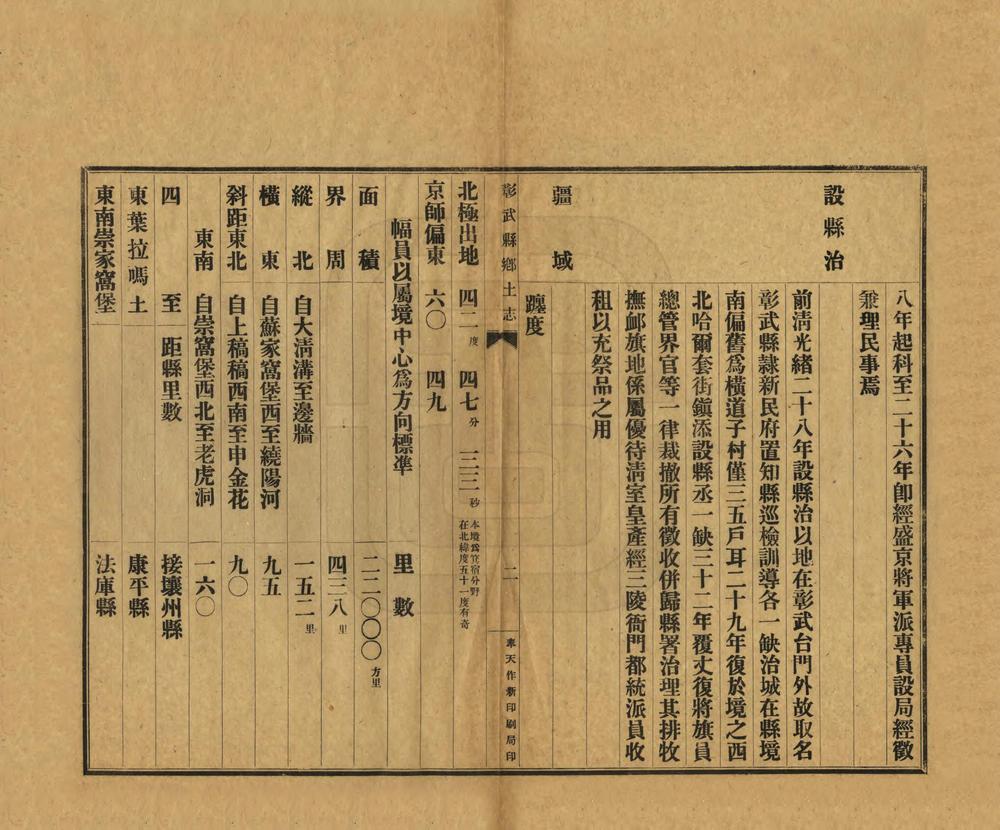 八年起科至二十六年卽經盛京將軍派專員設局經徵
兼理民事焉
設縣治
前清光緒二十八年設縣治以地在彰武台門外故取名
彰武縣隷新民府置知縣巡檢訓導各一缺治城在縣境
南偏舊爲橫道子村僅三五戶耳二十九年復於境之西
北哈爾套街鎭添設縣丞一缺三十二年覆丈復將旗員
總管界官等一律裁撤所有徵收併歸縣署治理其排牧
撫卹旗地係屬優待淸室皇產經三陵衙門都統派員收
租以充祭品之用
疆域
躔度
彰武縣鄉土志 二 奉天作新印刷局印
北極出地 四二度 四七分 三三秒 本境爲箕宿分野在北緯度五十一度有奇
京師偏東 六〇 四九
幅員以屬境中心爲方向標準 里數
面積 二二〇〇〇方里
界周 四三八里
縱北 自大淸溝至邊牆 一五二里
橫東 自蘇家窩堡西至繞陽河 九五
斜距東北 自上稿稿西南至申金花 九〇
東南 自崇窩堡西北至老虎洞 一六〇
四至 距縣里數 接壤州縣
東葉拉嗎土 康平縣
東南崇家窩堡 法庫縣